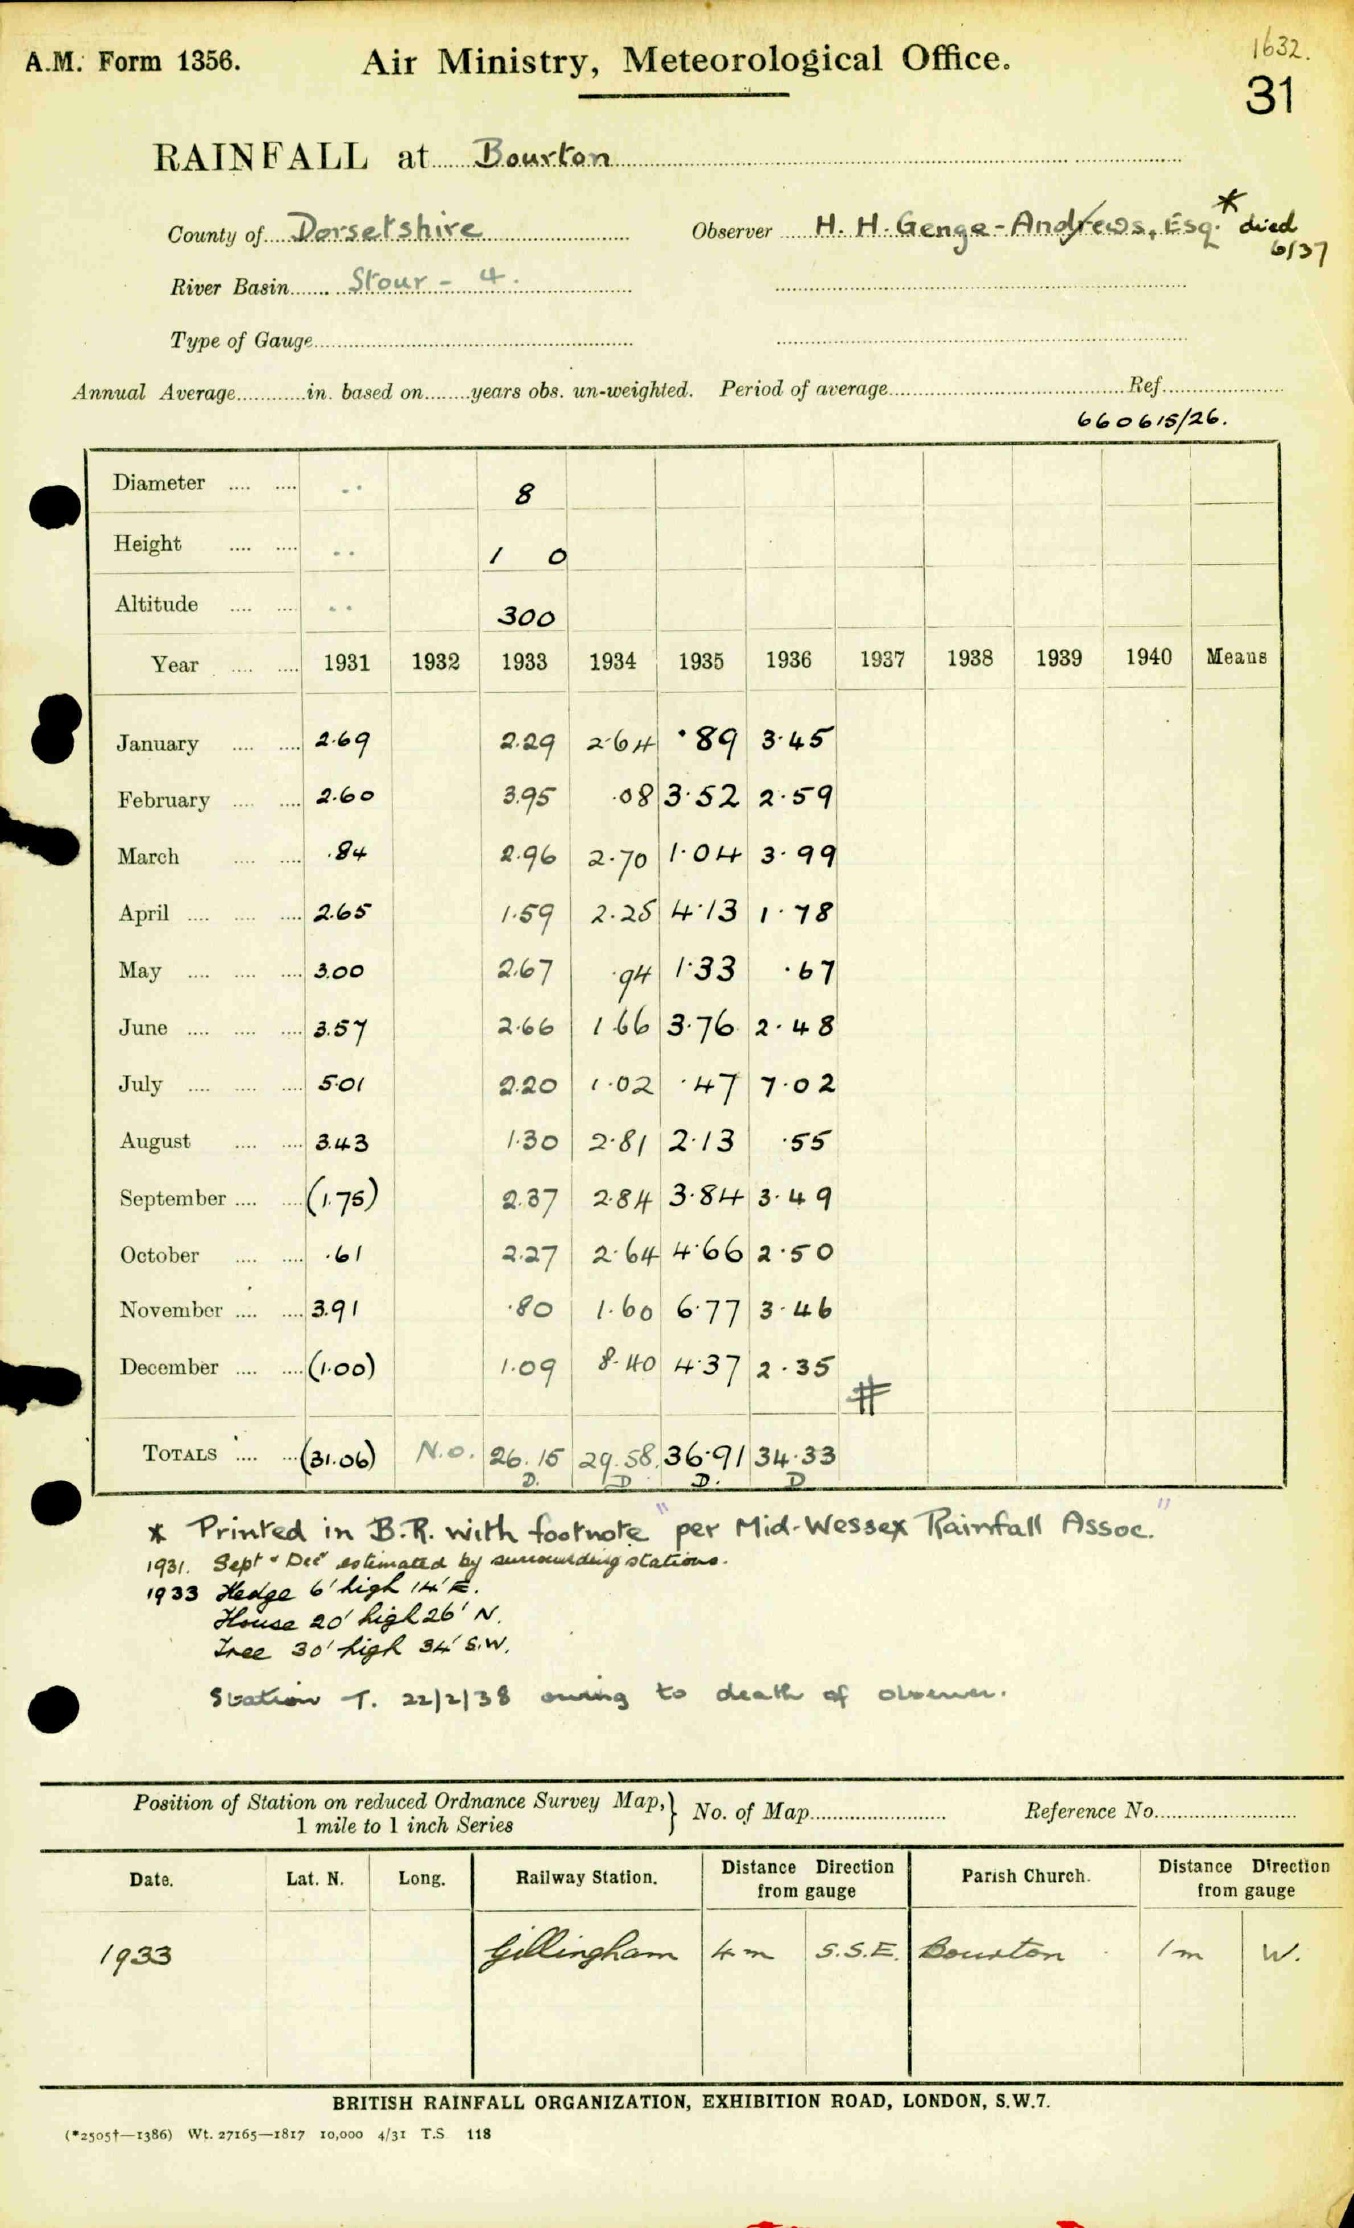 1632.
A.M. Form 1356. Air Ministry, Meteorological Office. 31
RAINFALL at Bourton
County of Dorsetshire Observer H. H. Genge-Andrews, Esq.* died 6/37
River Basin Stour - 4.
Type of Gauge
Annual Average in. based on years obs. un-weighted. Period of average Ref.
660615/26.
Diameter .. 8
Height .. 1 0
Altitude .. 300
Year 1931 1932 1933 1934 1935 1936 1937 1938 1939 1940 Means
January 2.69 2.29 2.64 .89 3.45
February 2.60 3.95 .08 3.52 2.59
March .84 2.96 2.70 1.04 3.99
April 2.65 1.59 2.25 4.13 1.78
May 3.00 2.67 .94 1.33 .67
June 3.57 2.66 1.66 3.76 2.48
July 5.01 2.20 1.02 .47 7.02
August 3.43 1.30 2.81 2.13 .55
September (1.75) 2.37 2.84 3.84 3.49
October .61 2.27 2.64 4.66 2.50
November 3.91 .80 1.60 6.77 3.46
December (1.00) 1.09 8.40 4.37 2.35 #
TOTALS (31.06) N.o. 26.15 29.58 36.91 34.33
D. D D. D
* Printed in B.R. with footnote "per Mid-Wessex Rainfall Assoc."
1931. Sept & Decr estimated by surrounding stations.
1933 Hedge 6' high 14' E.
House 20' high 26' N.
Tree 30' high 34' S.W.
Station T. 22/2/38 owing to death of observer.
Position of Station on reduced Ordnance Survey Map,} No. of Map Reference No.
1 mile to 1 inch Series
Date. Lat. N. Long. Railway Station. Distance Direction from gauge Parish Church. Distance Direction from gauge
1933 Gillingham 4 m S.S.E. Bourton 1 m W.
BRITISH RAINFALL ORGANIZATION, EXHIBITION ROAD, LONDON, S.W.7.
(*2505†—1386) Wt. 27165—1817 10,000 4/31 T.S 118